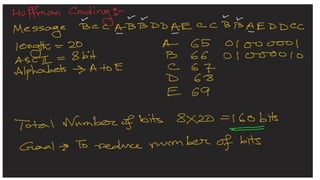 Huffman Coding:-
Message BCCABBDDAECCBBAEDDCC
length = 20
ASCII = 8 bit
Alphabets → A to E
A - 65 01000001
B 66 01000010
C 67
D 68
E 69
Total Number of bits 8X20 = 160 bits
Goal → To reduce number of bits